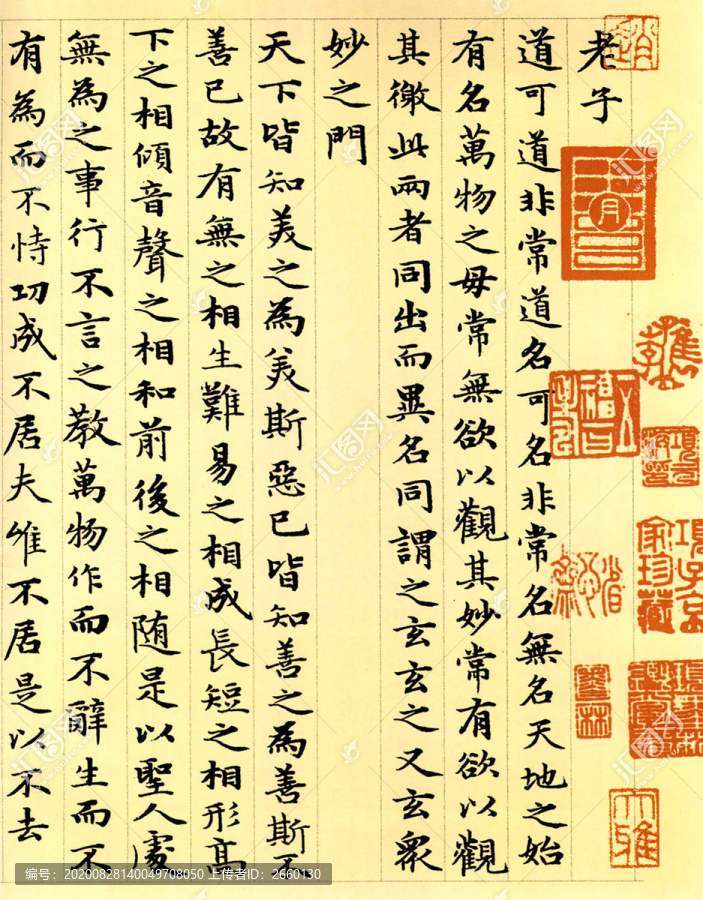 老子
道可道非常道名可名非常名無名天地之始
有名萬物之母常無欲以觀其妙常有欲以觀
其徼此兩者同出而異名同謂之玄玄之又玄眾
妙之門
天下皆知美之為美斯惡已皆知善之為善斯不
善已故有無之相生難易之相成長短之相形高
下之相傾音聲之相和前後之相随是以聖人處
無為之事行不言之教萬物作而不辭生而不
有為而不恃功成不居夫惟不居是以不去
項子京
家珍藏
汇图网
编号：20200828140049708050 上传者ID：2660130